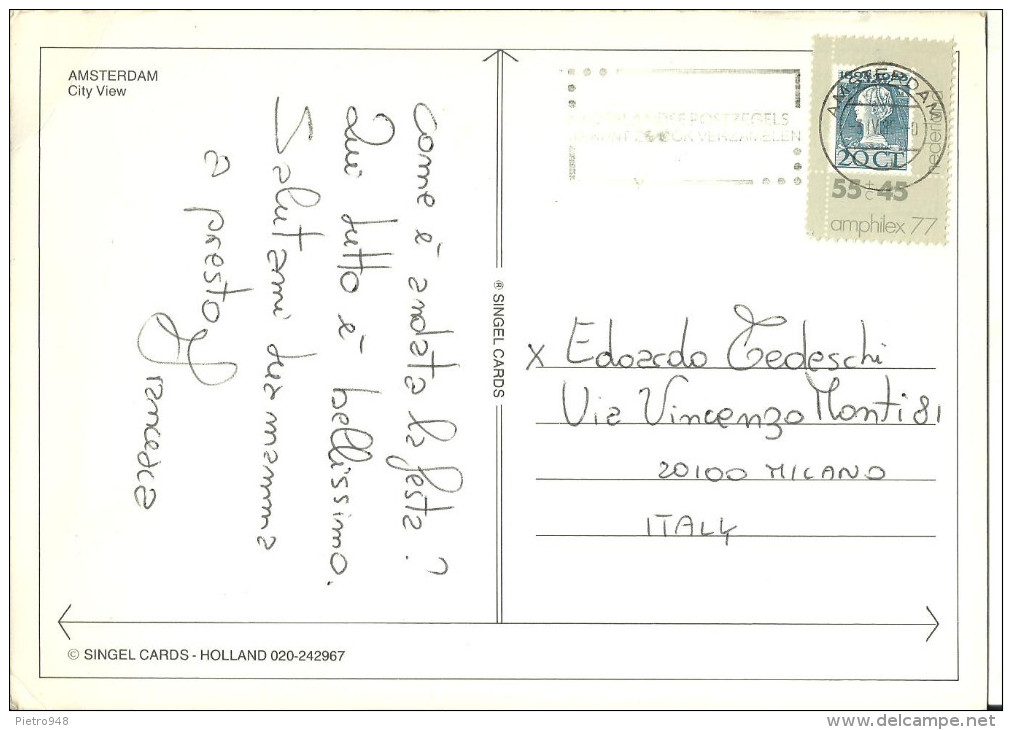 AMSTERDAM
City View
come è andata la festa?
Qui tutto è bellissimo.
Salutami tua mamma
a presto
Francesca
® SINGEL CARDS
POSTZEGELS
OOK VERZAMELEN
AMSTERDAM
20 CT
nederland
55+45
c
amphilex 77
x Edoardo Tedeschi
Via Vincenzo Monti 81
20100 MILANO
ITALY
© SINGEL CARDS - HOLLAND 020-242967
Pietro948
delcampe.net